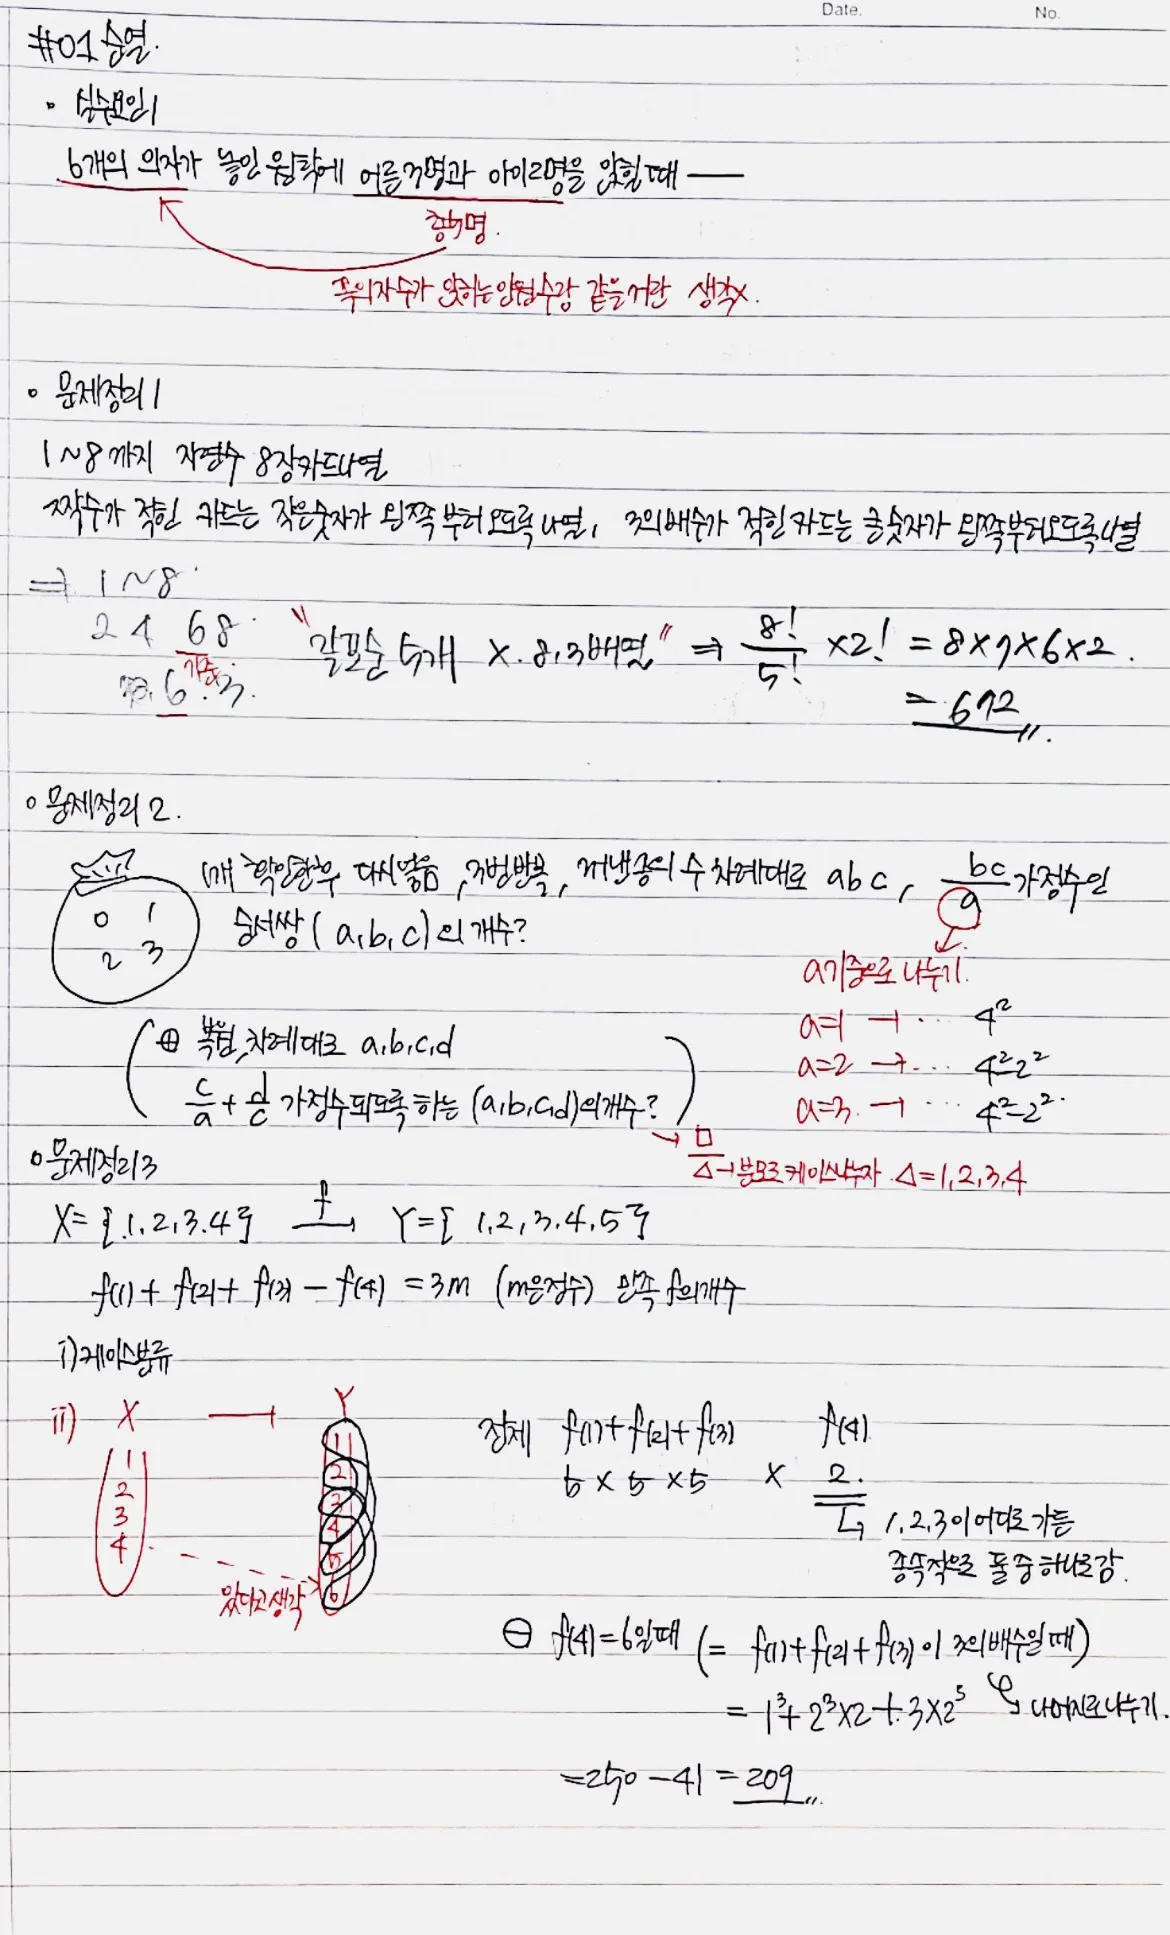 Date. No.
#01 순열.
• 실수모음1
6개의 의자가 놓인 원탁에 어른3명과 아이2명을 앉힐때 —
총5명.
꼭의자수가 앉히는인원수랑 같을거란 생각x.
• 문제정리1
1~8까지 자연수 8장카드나열
짝수가 적힌 카드는 작은숫자가 왼쪽부터오도록나열, 3의배수가 적힌카드는 큰숫자가 왼쪽부터오도록나열
⇒ 1~8.
2 4 6 8.
기준
6. 3.
"같포순 5개 x. 8, 3배열" ⇒ 8!/5! ×2! = 8×7×6×2.
= 672
• 문제정리2.
0 1
2 3
1개 확인한후 다시넣음, 3번반복, 꺼낸공의 수 차례대로 a b c, bc/a 가정수인
순서쌍 (a, b, c)의 개수?
a기준으로 나누기.
a=1 → ... 4²
a=2 → ... 4²-2²
a=3. → ... 4²-2².
( ⊕ 복원, 차례대로 a,b,c,d
c/a + d/c 가정수되도록 하는 (a,b,c,d)의개수? )
→ □/△ → 분모로 케이스나누자. △=1,2,3,4
• 문제정리3
X={.1,2,3.4} f→ Y={ 1,2,3,4,5}
f(1)+ f(2)+ f(3) - f(4) = 3m (m은정수) 만족 f의개수
i)케이스분류
ii) X → Y
1 2 3 4
1 2 3 4 5 6
있다고생각
전체 f(1)+f(2)+f(3) f(4)
5 × 5 × 5 × 2.
↳ 1, 2, 3이 어디로 가든
종속적으로 둘 중 하나로감.
⊖ f(4)=6일때 (= f(1)+f(2)+f(3)이 3의배수일때)
↳ 나머지로나누기.
= 1³+2³×2+3×2⁵
=250-41=209